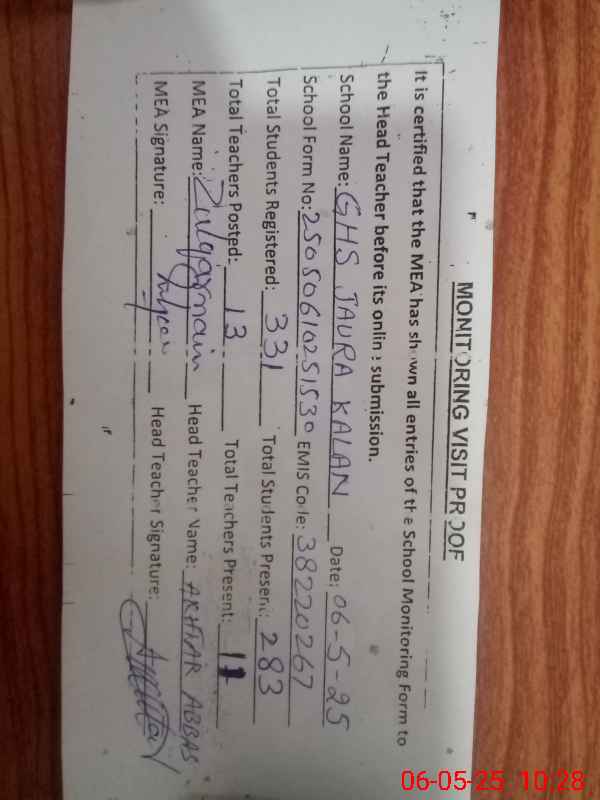 MONITORING VISIT PROOF
It is certified that the MEA has shown all entries of the School Monitoring Form to
the Head Teacher before its online submission.
School Name: GHS JAURA KALAN Date: 06-5-25
School Form No: 25050610251530 EMIS Code: 38220267
Total Students Registered: 331 Total Students Present: 283
Total Teachers Posted: 13 Total Teachers Present: 11
MEA Name: Zulqarnain Head Teacher Name: AKHTAR ABBAS
MEA Signature: Head Teacher Signature:
06-05-25 10:28